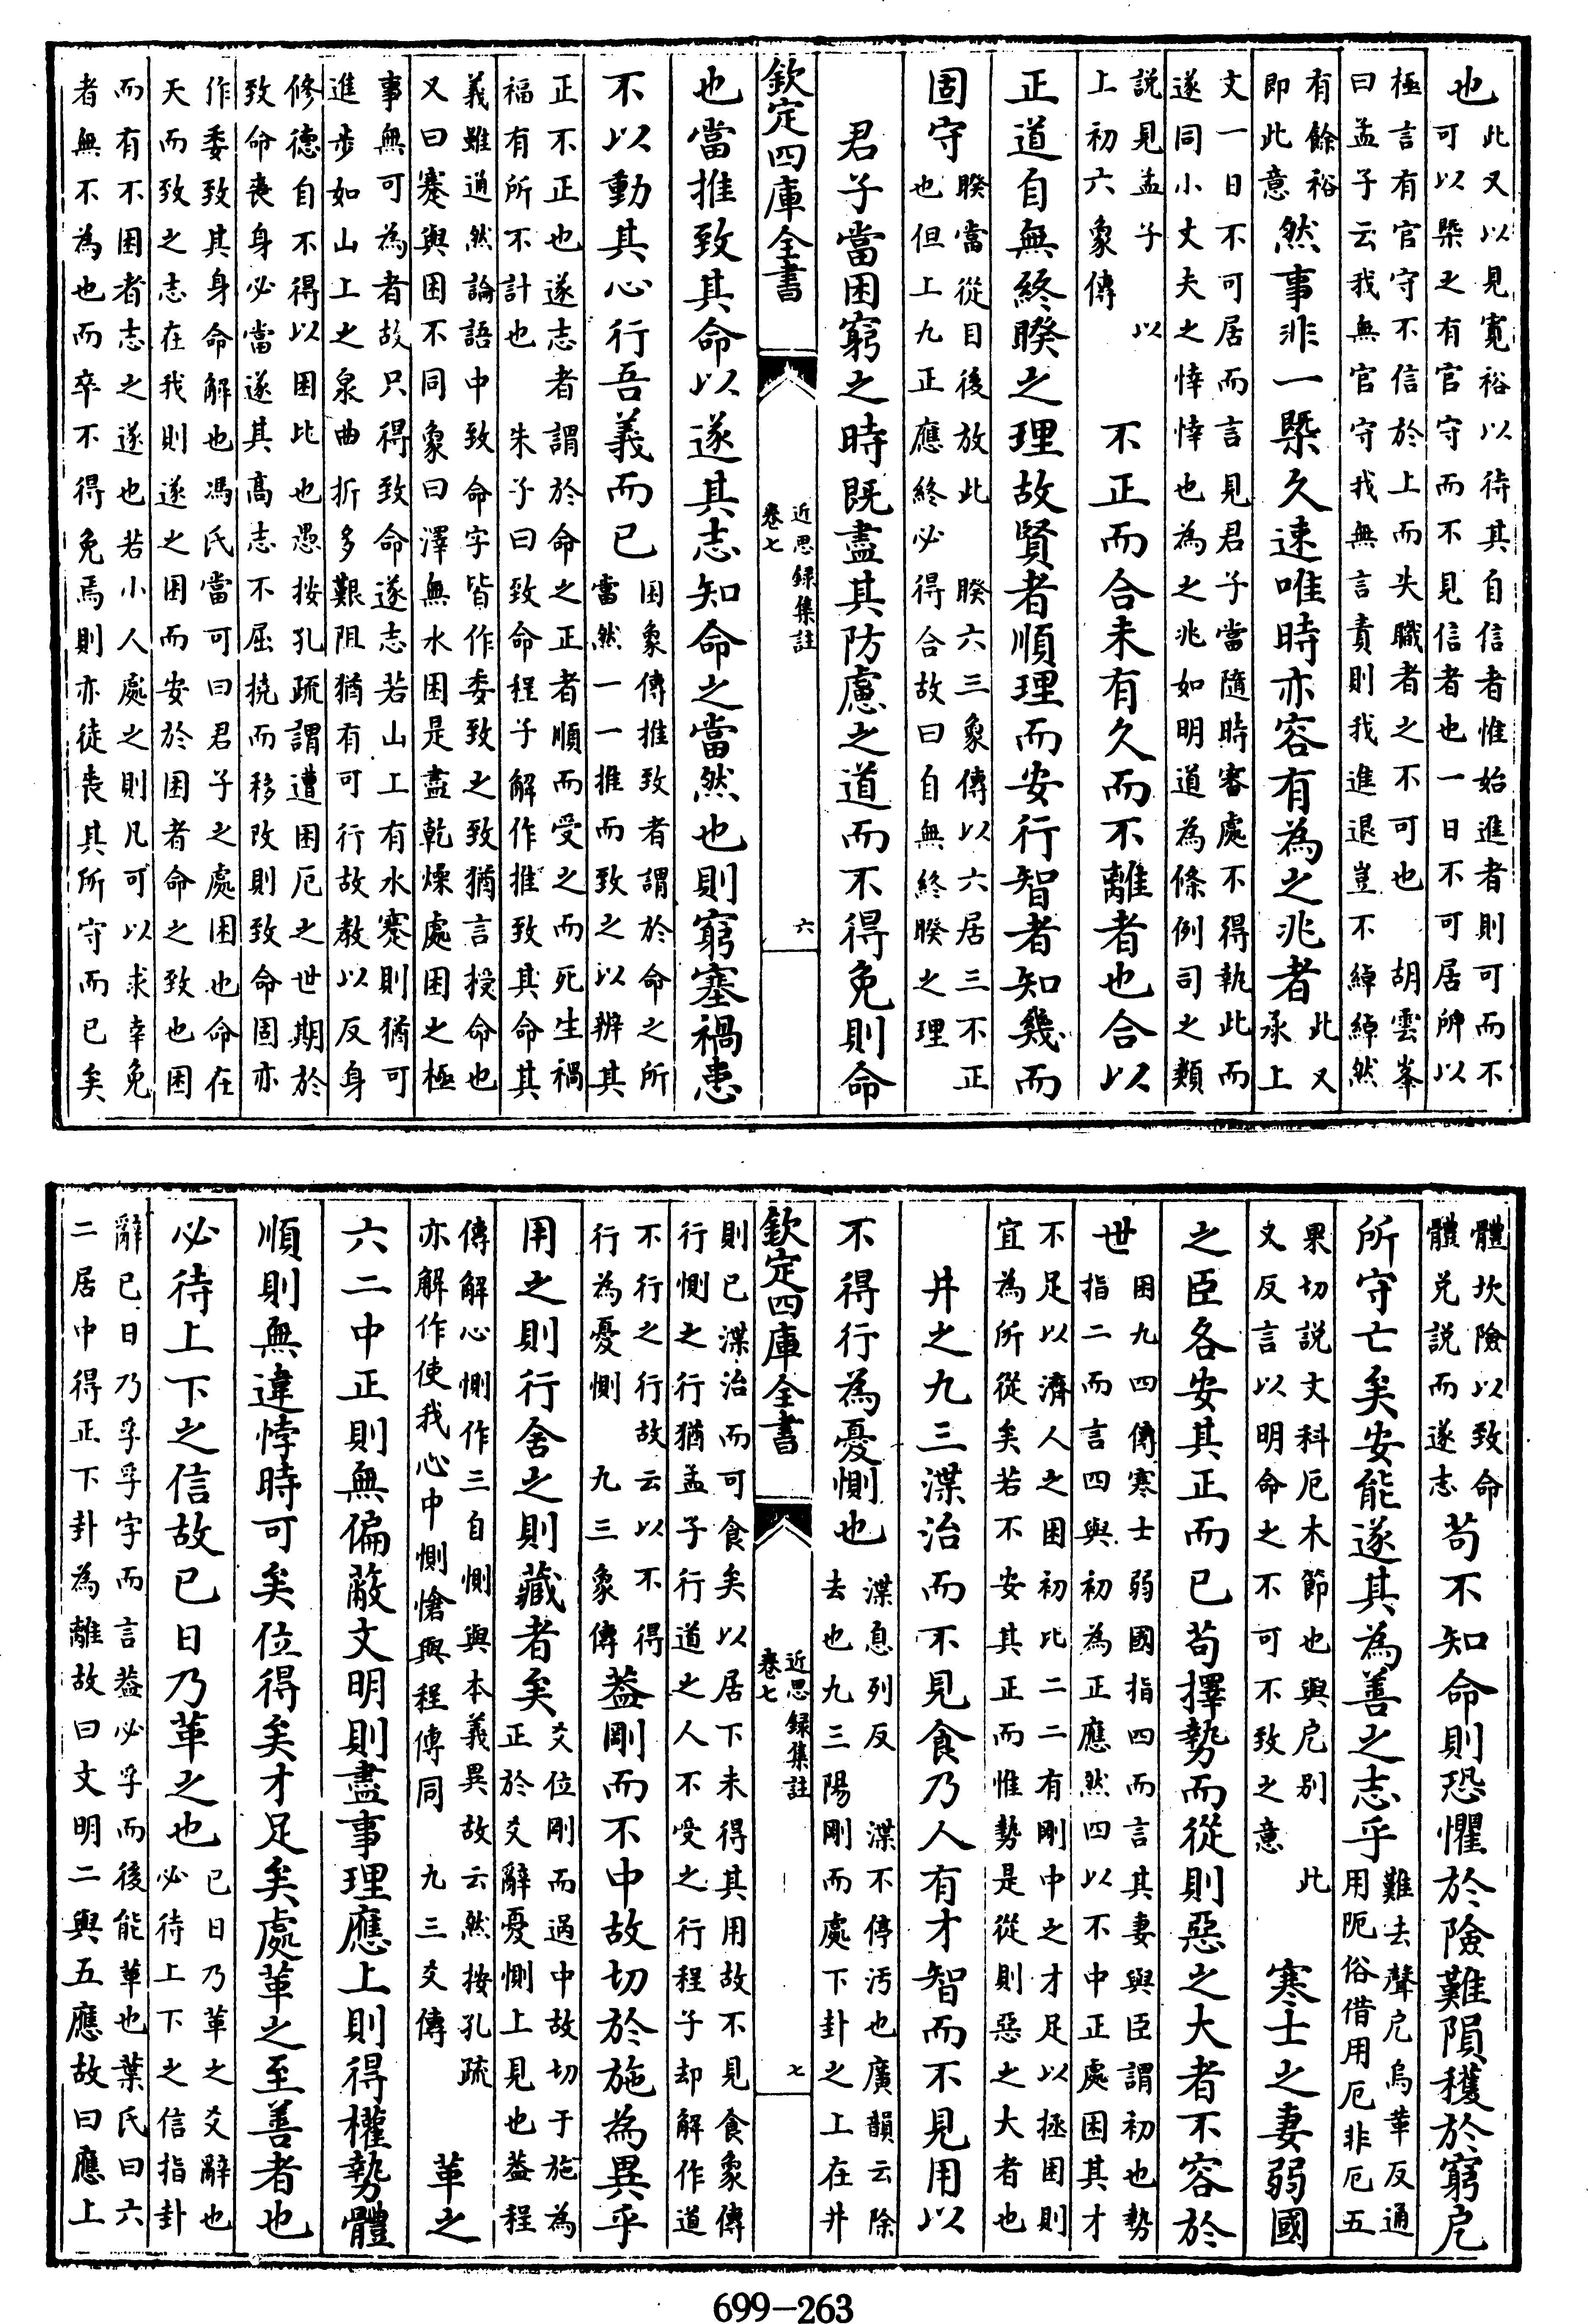 也此又以見寬裕以待其自信者惟始進者則可而不可以槩之有官守而不見信者也一日不可居所以
極言有官守不信於上而失職者之不可也 胡雲峯曰孟子云我無官守我無言責則我進退豈不綽綽然
有餘裕即此意然事非一槩久速唯時亦容有為之兆者此又承上
文一日不可居而言見君子當隨時審處不得執此而遂同小丈夫之悻悻也為之兆如明道為條例司之類
說見孟子 以上初六象傳 不正而合未有久而不離者也合以
正道自無終睽之理故賢者順理而安行智者知幾而
固守睽當從目後放此 睽六三象傳以六居三不正也但上九正應終必得合故曰自無終睽之理
君子當困窮之時既盡其防慮之道而不得免則命
欽定四庫全書 近思録集註 卷七 六
也當推致其命以遂其志知命之當然也則窮塞禍患
不以動其心行吾義而已困象傳推致者謂於命之所當然一一推而致之以辨其
正不正也遂志者謂於命之正者順而受之而死生禍福有所不計也 朱子曰致命程子解作推致其命其
義雖通然論語中致命字皆作委致之致猶言授命也又曰蹇與困不同象曰澤無水困是盡乾燥處困之極
事無可為者故只得致命遂志若山上有水蹇則猶可進步如山上之泉曲折多艱阻猶有可行故教以反身
修德自不得以困比也愚按孔疏謂遭困厄之世期於致命喪身必當遂其高志不屈撓而移改則致命固亦
作委致其身命解也馮氏當可曰君子之處困也命在天而致之志在我則遂之困而安於困者命之致也困
而有不困者志之遂也若小人處之則凡可以求幸免者無不為也而卒不得免焉則亦徒喪其所守而已矣
體坎險以致命體兌說而遂志苟不知命則恐懼於險難隕穫於窮戹
所守亡矣安能遂其為善之志乎難去聲戹烏革反通用阨俗借用厄非厄五
果切說文科厄木節也與戹别又反言以明命之不可不致之意 此 寒士之妻弱國
之臣各安其正而已苟擇勢而從則惡之大者不容於
世困九四傳寒士弱國指四而言其妻與臣謂初也勢指二而言四與初為正應然四以不中正處困其才
不足以濟人之困初比二二有剛中之才足以拯困則宜為所從矣若不安其正而惟勢是從則惡之大者也
井之九三渫治而不見食乃人有才智而不見用以
不得行為憂惻也渫息列反 渫不停汚也廣韻云除去也九三陽剛而處下卦之上在井
欽定四庫全書 近思録集註 卷七 七
則已渫治而可食矣以居下未得其用故不見食象傳行惻之行猶孟子行道之人不受之行程子却解作道
不行之行故云以不得行為憂惻 九三象傳葢剛而不中故切於施為異乎
用之則行舍之則藏者矣爻位剛而過中故切于施為正於爻辭憂惻上見也葢程
傳解心惻作三自惻與本義異故云然按孔疏亦解作使我心中惻愴與程傳同 九三爻傳 革之
六二中正則無偏蔽文明則盡事理應上則得權勢體
順則無違悖時可矣位得矣才足矣處革之至善者也
必待上下之信故已日乃革之也已日乃革之爻辭也必待上下之信指卦
辭已日乃孚孚字而言葢必孚而後能革也葉氏曰六二居中得正下卦為離故曰文明二與五應故曰應上
699-263